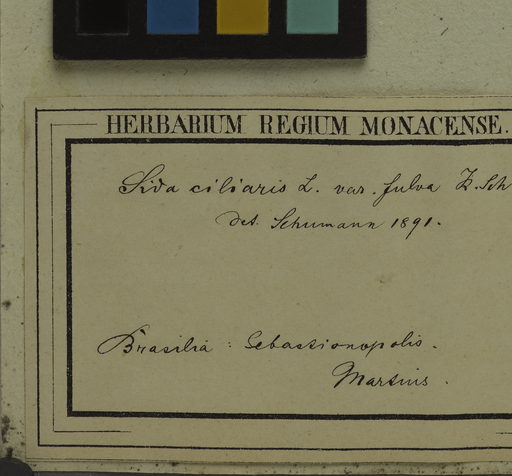 HERBARIUM REGIUM MONACENSE.
Sida ciliaris L. var. fulva K. Sch
Det. Schumann 1891.
Brasilia : Sebastianopolis.
Martius.